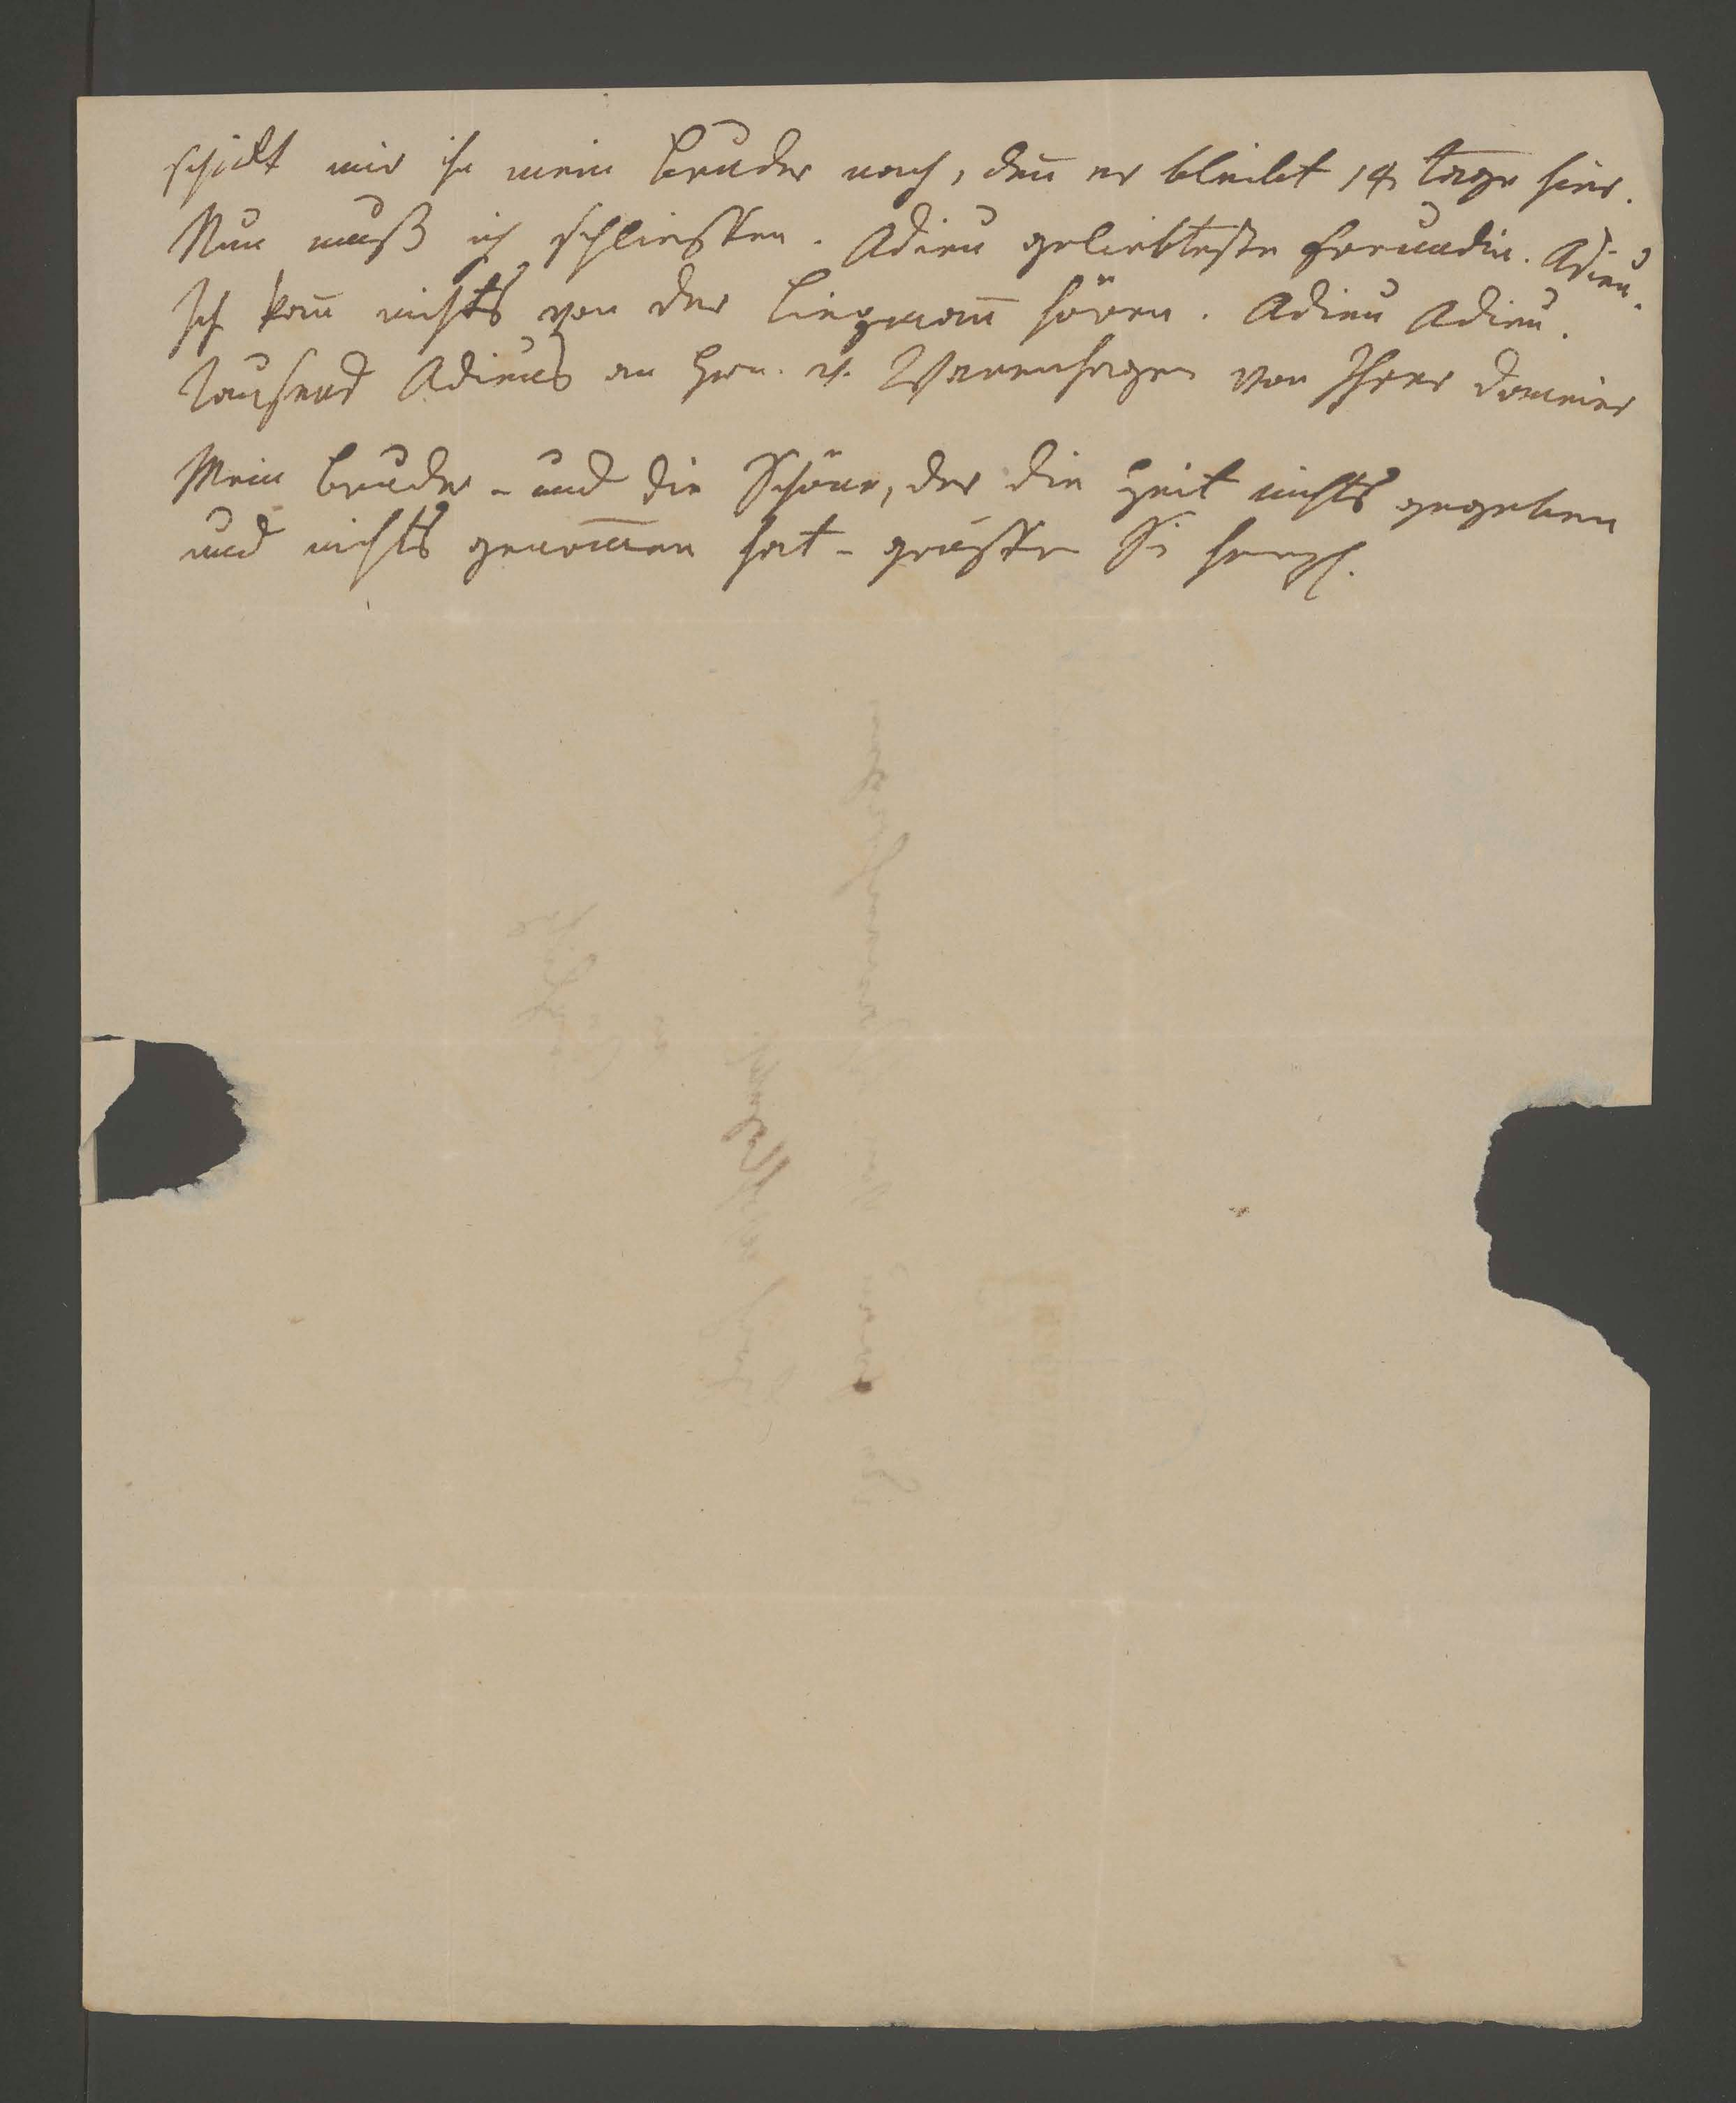 schickt mir ihn mein Bruder nach, den̅ er bleibt 14 Tage hier.
Nun muß ich schliessen. Adieu geliebteste Freundin. Adieu.
Ich kan̅ nichts von der Liegman̅ hören. Adieu Adieu.
Tausend Adieus an Hrn. v. Varenhagen von Ihrer Domeier
Mein Bruder - und die Schöne, der die Zeit nichts gegeben
und nichts genom̅en hat - grüssen Si herzl.